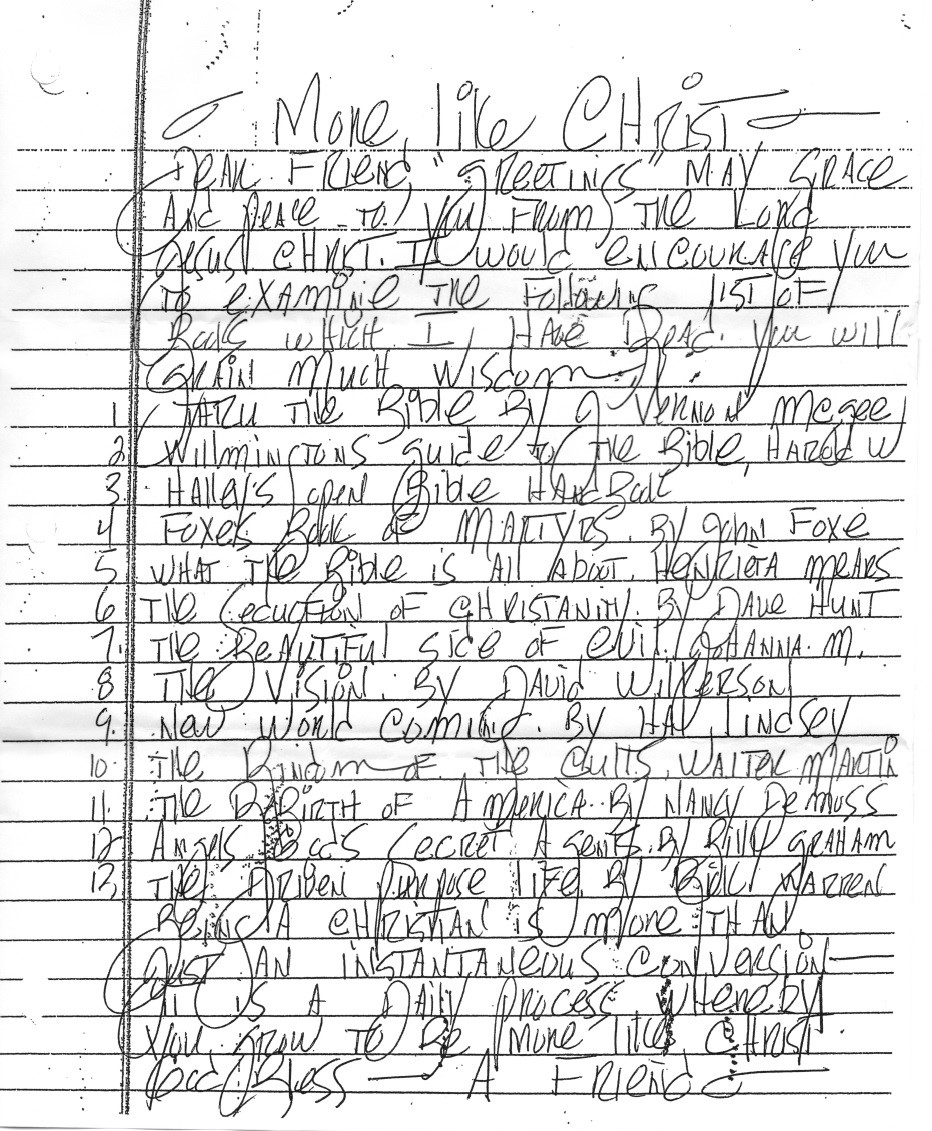 More like CHRIST
DEAR FRIEND, "GREETINGS" MAY GRACE
And peace to you FROM THE LORD
Jesus CHRIST. I would encourage you
To examine THE Following list of
Books which I Have Read. You will
GAIN Much Wisdom
1. THRU THE Bible By J Vernon McGee
2 Willmingtons guide to THE Bible, Harold W
3. Halley's open Bible HandBook
4 Foxe's Book of MARTYRS. By John Foxe
5 WHAT THE Bible is All About. HENRIETA MEARS
6 THE Ceduction OF CHRISTANITY. By Dave HUNT
7. THE BEAUTIFUL side OF evil. JoHANNA. M.
8 THE Vision. By David Wilkerson
9. New World Coming. By HAL Lindsey
10. THE Kingdom OF THE Cults, WALTER MARTIN
11. THE ReBirth of America. By NANCY DeMoss
12 Angels Gods Cecret Agents. By Billy GRAHAM
13, THE DRIBEN Purpose life By WARREN
Being A CHRISTIAN is more THAN
Just AN INSTANTANEOUS CONVERSION
IT is A Daily Process whereby
You grow To Be more like CHRIST
God Bless A Friend